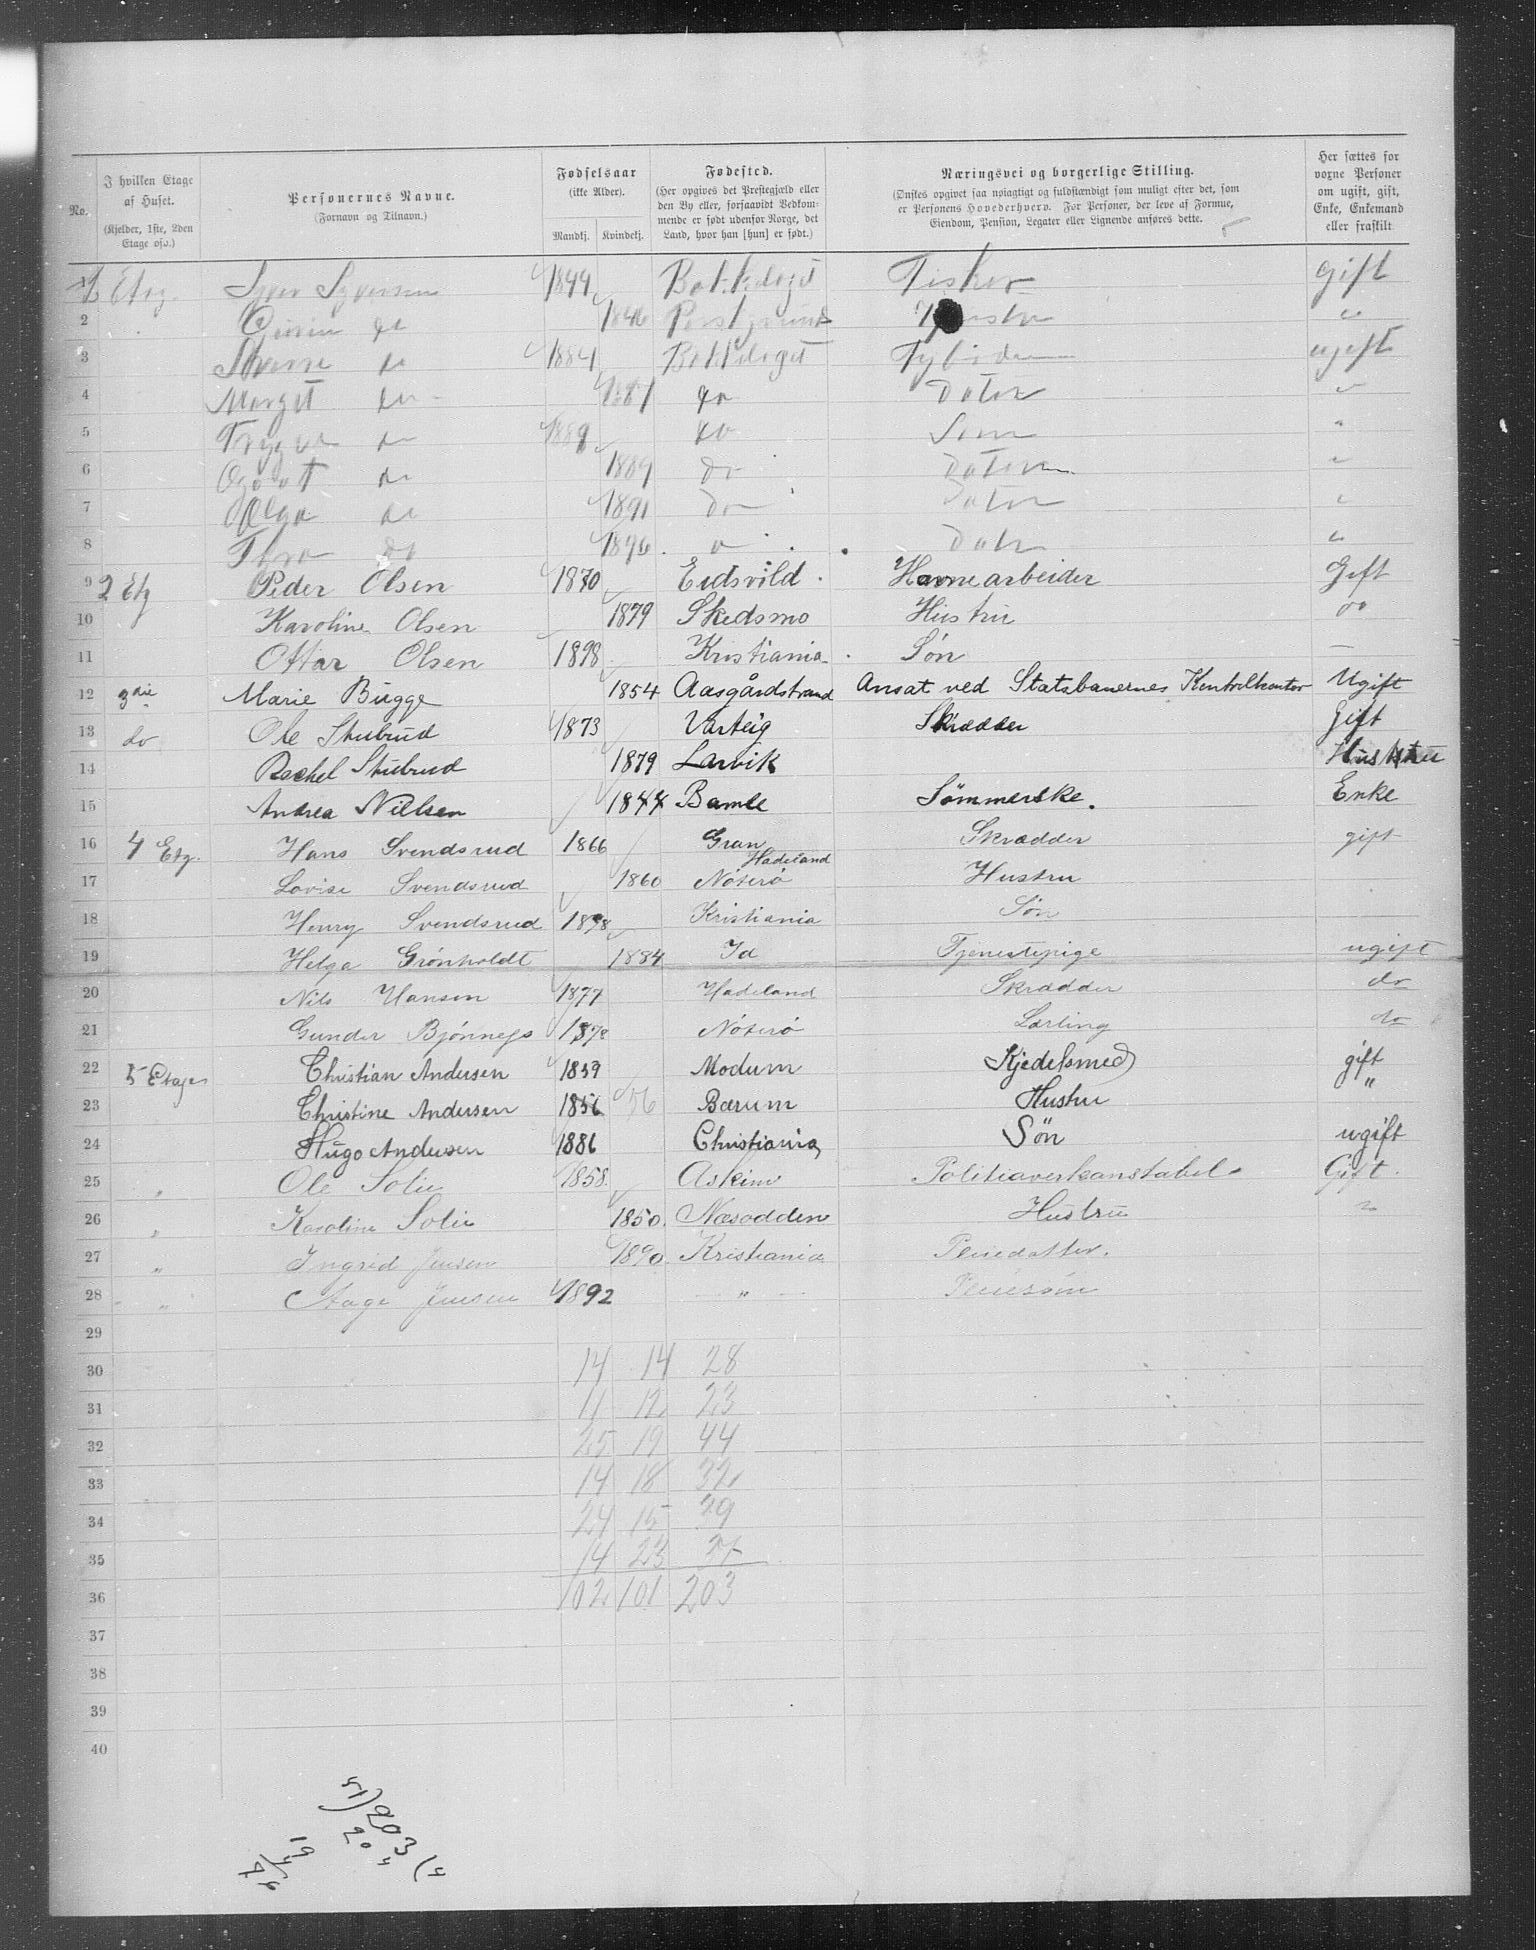 No.
I hvilken Etage af Huset.
(Kjelder, 1ste, 2den Etage osv.)
Personernes Navne.
(Fornavn og Tilnavn.)
Fødselsaar
(ikke Alder).
Mandkj. Kvindekj.
Fødested.
(Her opgives det Prestegjæld eller
den By eller, forsaavidt Vedkom-
mende er født udenfor Norge, det
Land, hvor han [hun] er født.)
Næringsvei og borgerlige Stilling.
(Ønskes opgivet saa nøiagtigt og fuldstændigt som muligt efter det, som
er Personens Hovederhverv. For Personer, der leve af Formue,
Eiendom, Pension, Legater eller Lignende anføres dette.
Her sættes for
voxne Personer
om ugift, gift,
Enke, Enkemand
eller fraskilt
1 1 Etg. 1844 Fisker gift
2 do 1846 "
3 do 1884 ugift
4 Margit do 1887 do Dater "
5 Trygve do do Søn "
6 do 1889 do Dater "
7 Olga do 1891 do Dater "
8 do 1896 Dater "
9 2 Etg Peder Olsen 1870 Eidsvold Havnearbeider Gift
10 Karoline Olsen 1879 Skedsmo Hustru do
11 Ottar Olsen 1898 Kristiania Søn —
12 3die Marie Bugge 1854 Aasgårdstrand Ansat ved Statsbanernes Kontrolkontor Ugift
13 do Ole Stubrud 1873 Varteig Skrædder Gift
14 Rachel Stubrud 1879 Larvik Hustru
15 Andrea Nielsen 1844 Bamle Sömmerske. Enke
16 4 Etg. Hans Svendsrud 1866 Gran Hadeland Skrædder gift
17 Lovise Svendsrud 1860 Nøterø Hustru
18 Henry Svendsrud 1898 Kristiania Søn
19 Helga Grønholdt 1884 Id Tjenestepige ugift
20 Nils Hansen 1877 Hadeland Skrædder do
21 Gunder 1878 Nøterø Lærling do
22 5 Etage Christian Andersen 1859 Modum Kjedelsmed gift
23 Christine Andersen 1856 56 Bærum Hustru "
24 Hugo Andersen 1886 Christiania Sön ugift
25 " Ole Solie 1858. Askim Politioverkonstabel Gift.
26 " Karoline Solie 1850. Næsodden Hustru "
27 " Ingrid Jensen 1890. Kristiania Pleiedatter.
28 " Aage Jensen 1892 " Pleiesøn
29
30 14 14 28
31 11 12 23
32 25 19 44
33 14 18 32
34 24 15 39
35 14 23 37
36 102 101 203
37
38
39
40
51) 203 (4
204